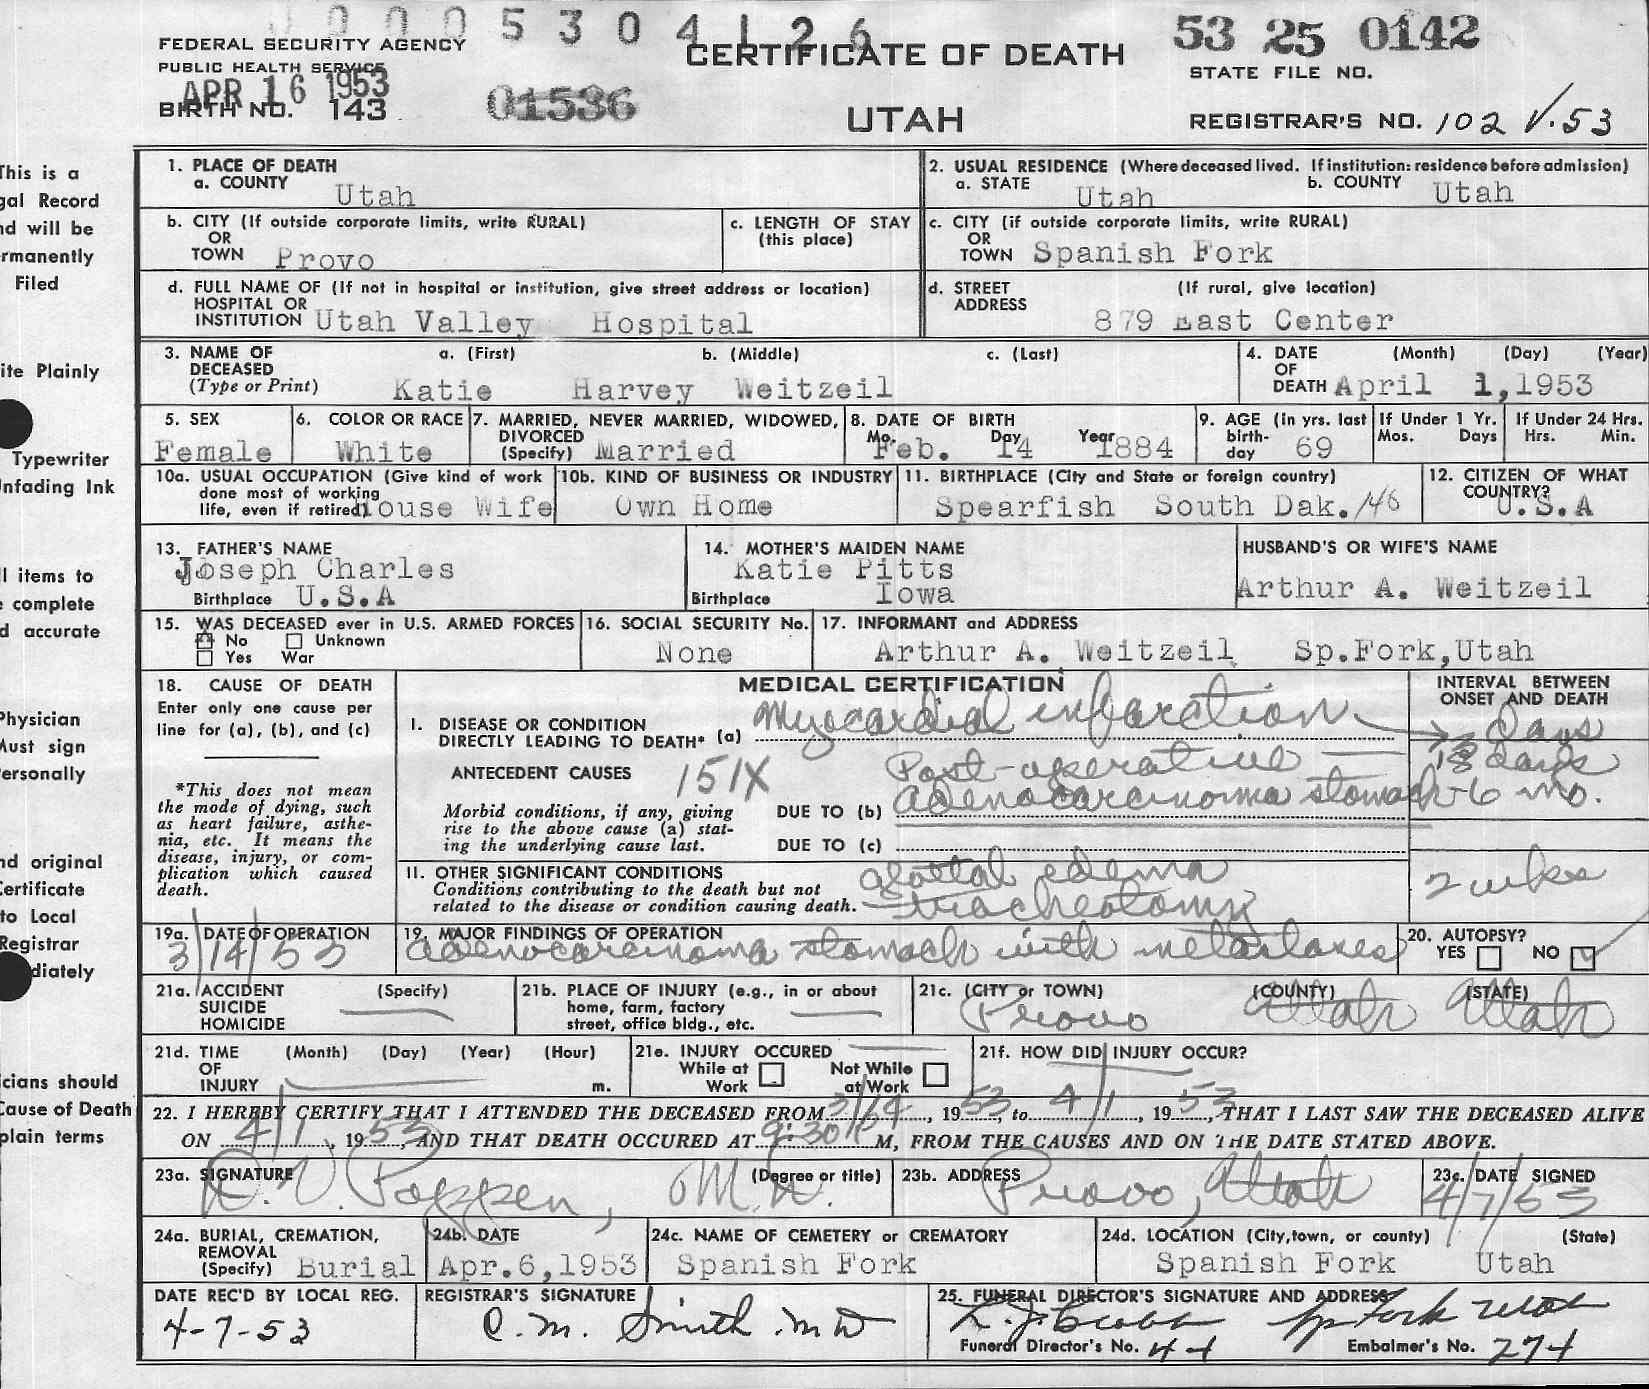 0 0 0 5 3 0 4 1 2 6
53 25 0142
FEDERAL SECURITY AGENCY
CERTIFICATE OF DEATH
PUBLIC HEALTH SERVICE
STATE FILE NO.
APR 16 1953
BIRTH NO. 143
01536
UTAH
REGISTRAR'S NO. 102 V.53
This is a
gal Record
nd will be
rmanently
Filed
ite Plainly
Typewriter
Unfading Ink
ll items to
e complete
d accurate
Physician
Must sign
ersonally
nd original
Certificate
to Local
Registrar
diately
icians should
Cause of Death
plain terms
1. PLACE OF DEATH
a. COUNTY Utah
2. USUAL RESIDENCE (Where deceased lived. If institution: residence before admission)
a. STATE Utah b. COUNTY Utah
b. CITY (If outside corporate limits, write RURAL)
OR
TOWN Provo
c. LENGTH OF STAY
(this place)
c. CITY (if outside corporate limits, write RURAL)
OR
TOWN Spanish Fork
d. FULL NAME OF (If not in hospital or institution, give street address or location)
HOSPITAL OR
INSTITUTION Utah Valley Hospital
d. STREET (If rural, give location)
ADDRESS
879 East Center
3. NAME OF a. (First) b. (Middle) c. (Last)
DECEASED
(Type or Print) Katie Harvey Weitzeil
4. DATE (Month) (Day) (Year)
OF
DEATH April 1, 1953
5. SEX
Female
6. COLOR OR RACE
White
7. MARRIED, NEVER MARRIED, WIDOWED,
DIVORCED
(Specify) Married
8. DATE OF BIRTH
Mo. Day Year
Feb. 14 1884
9. AGE (in yrs. last
birth-
day 69
If Under 1 Yr.
Mos. Days
If Under 24 Hrs.
Hrs. Min.
10a. USUAL OCCUPATION (Give kind of work
done most of working
life, even if retired) House Wife
10b. KIND OF BUSINESS OR INDUSTRY
Own Home
11. BIRTHPLACE (City and State or foreign country)
Spearfish South Dak. 146
12. CITIZEN OF WHAT
COUNTRY?
U.S.A
13. FATHER'S NAME
Joseph Charles
Birthplace U.S.A
14. MOTHER'S MAIDEN NAME
Katie Pitts
Birthplace Iowa
HUSBAND'S OR WIFE'S NAME
Arthur A. Weitzeil
15. WAS DECEASED ever in U.S. ARMED FORCES
No Unknown
Yes War
16. SOCIAL SECURITY No.
None
17. INFORMANT and ADDRESS
Arthur A. Weitzeil Sp.Fork,Utah
18. CAUSE OF DEATH
Enter only one cause per
line for (a), (b), and (c)
*This does not mean
the mode of dying, such
as heart failure, asthe-
nia, etc. It means the
disease, injury, or com-
plication which caused
death.
MEDICAL CERTIFICATION
INTERVAL BETWEEN
ONSET AND DEATH
I. DISEASE OR CONDITION
DIRECTLY LEADING TO DEATH* (a) Myocardial infarction days
ANTECEDENT CAUSES 151X Post-operative 18 days
Morbid conditions, if any, giving
rise to the above cause (a) stat-
ing the underlying cause last.
DUE TO (b) adenocarcinoma stomach 6 mo.
DUE TO (c)
II. OTHER SIGNIFICANT CONDITIONS
Conditions contributing to the death but not
related to the disease or condition causing death.
glottal edema
tracheotomy
2 wks
19a. DATE OF OPERATION
3/14/53
19. MAJOR FINDINGS OF OPERATION
adenocarcinoma stomach with metastases
20. AUTOPSY?
YES NO
21a. ACCIDENT (Specify)
SUICIDE
HOMICIDE
21b. PLACE OF INJURY (e.g., in or about
home, farm, factory
street, office bldg., etc.
21c. (CITY or TOWN) (COUNTY) (STATE)
Provo Utah Utah
21d. TIME (Month) (Day) (Year) (Hour)
OF
INJURY m.
21e. INJURY OCCURED
While at Not While
Work at Work
21f. HOW DID INJURY OCCUR?
22. I HEREBY CERTIFY THAT I ATTENDED THE DECEASED FROM 3/14, 1953, to 4/1, 1953, THAT I LAST SAW THE DECEASED ALIVE
ON 4/1, 1953, AND THAT DEATH OCCURED AT 9:30 P M, FROM THE CAUSES AND ON THE DATE STATED ABOVE.
23a. SIGNATURE (Degree or title)
R. V. Poppen, M.D.
23b. ADDRESS
Provo, Utah
23c. DATE SIGNED
4/7/53
24a. BURIAL, CREMATION,
REMOVAL
(Specify) Burial
24b. DATE
Apr.6,1953
24c. NAME OF CEMETERY or CREMATORY
Spanish Fork
24d. LOCATION (City,town, or county) (State)
Spanish Fork Utah
DATE REC'D BY LOCAL REG.
4-7-53
REGISTRAR'S SIGNATURE
C. M. Smith MD
25. FUNERAL DIRECTOR'S SIGNATURE AND ADDRESS
Sp Fork Utah
Funeral Director's No. 44 Embalmer's No. 274